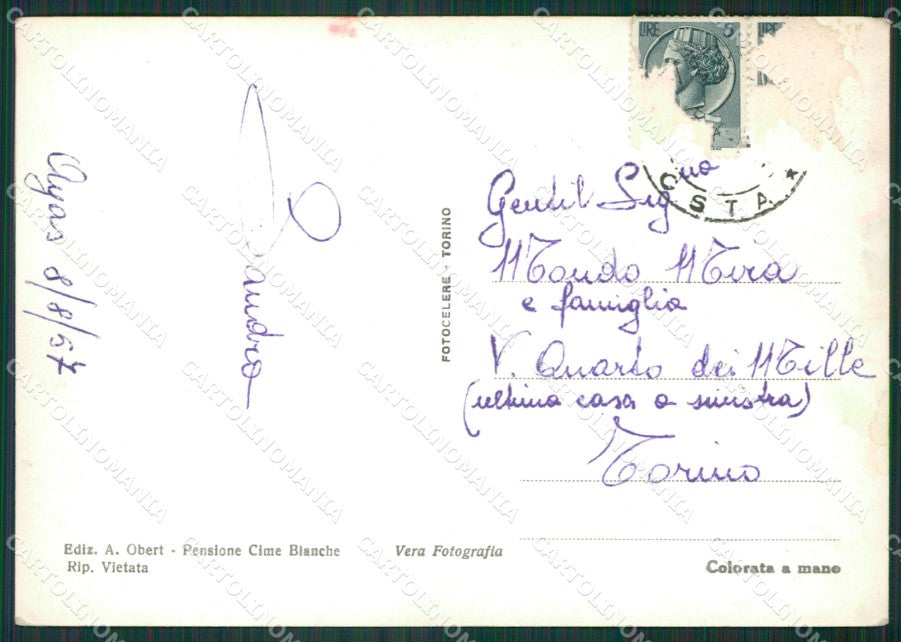 Ayas 8/8/57
Sandro
FOTOCELERE - TORINO
LIRE 5
LIRE
OSTA *
Gentil Sig.na
Mondo Mira
e famiglia
V. Quarto dei Mille
(ultima casa a sinistra)
Torino
Ediz. A. Obert - Pensione Cime Bianche
Rip. Vietata
Vera Fotografia
Colorata a mano
CARTOLINOMANIA